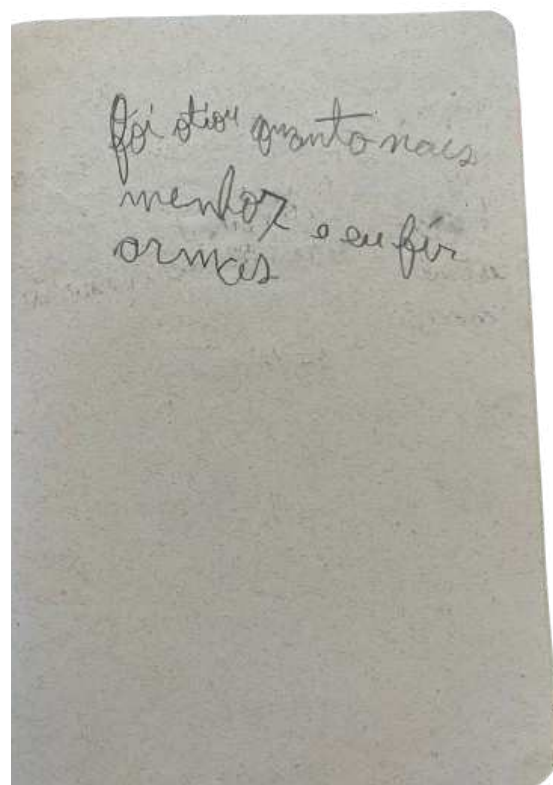 foi otiou quanto nais
menhor e eu fiz
ormais